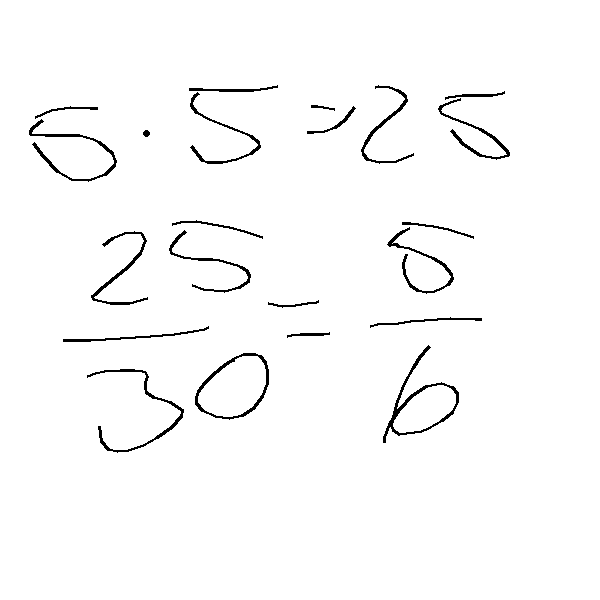 5 · 5 = 25
25/30 = 5/6